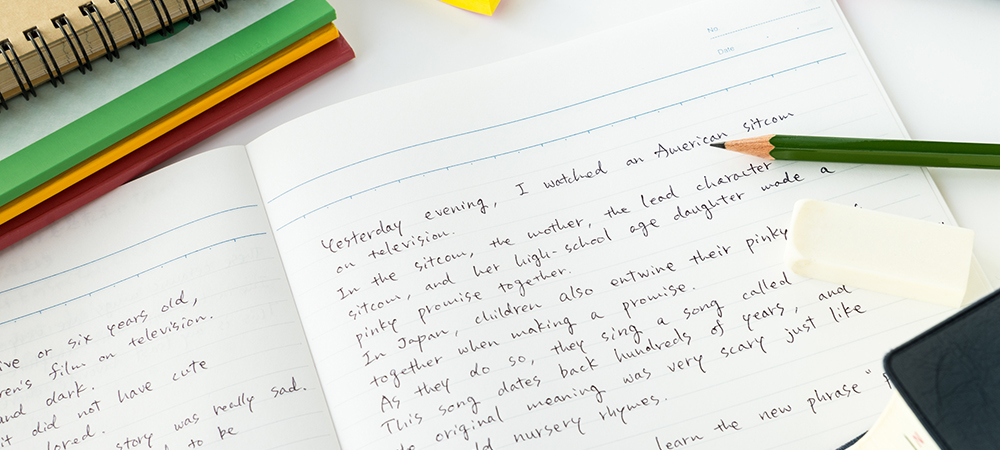 ive or six years old,
ren's film on television.
and dark.
it did not have cute
lored.
story was really sad.
to be
No.
Date
Yesterday evening, I watched an American sitcom
on television.
In the sitcom, the mother, the lead character
sitcom, and her high-school age daughter made a
pinky promise together.
In Japan, children also entwine their pinky
together when making a promise.
As they do so, they sing a song called
This song dates back hundreds of years, and
original meaning was very scary just like
nursery rhymes.
learn the new phrase "